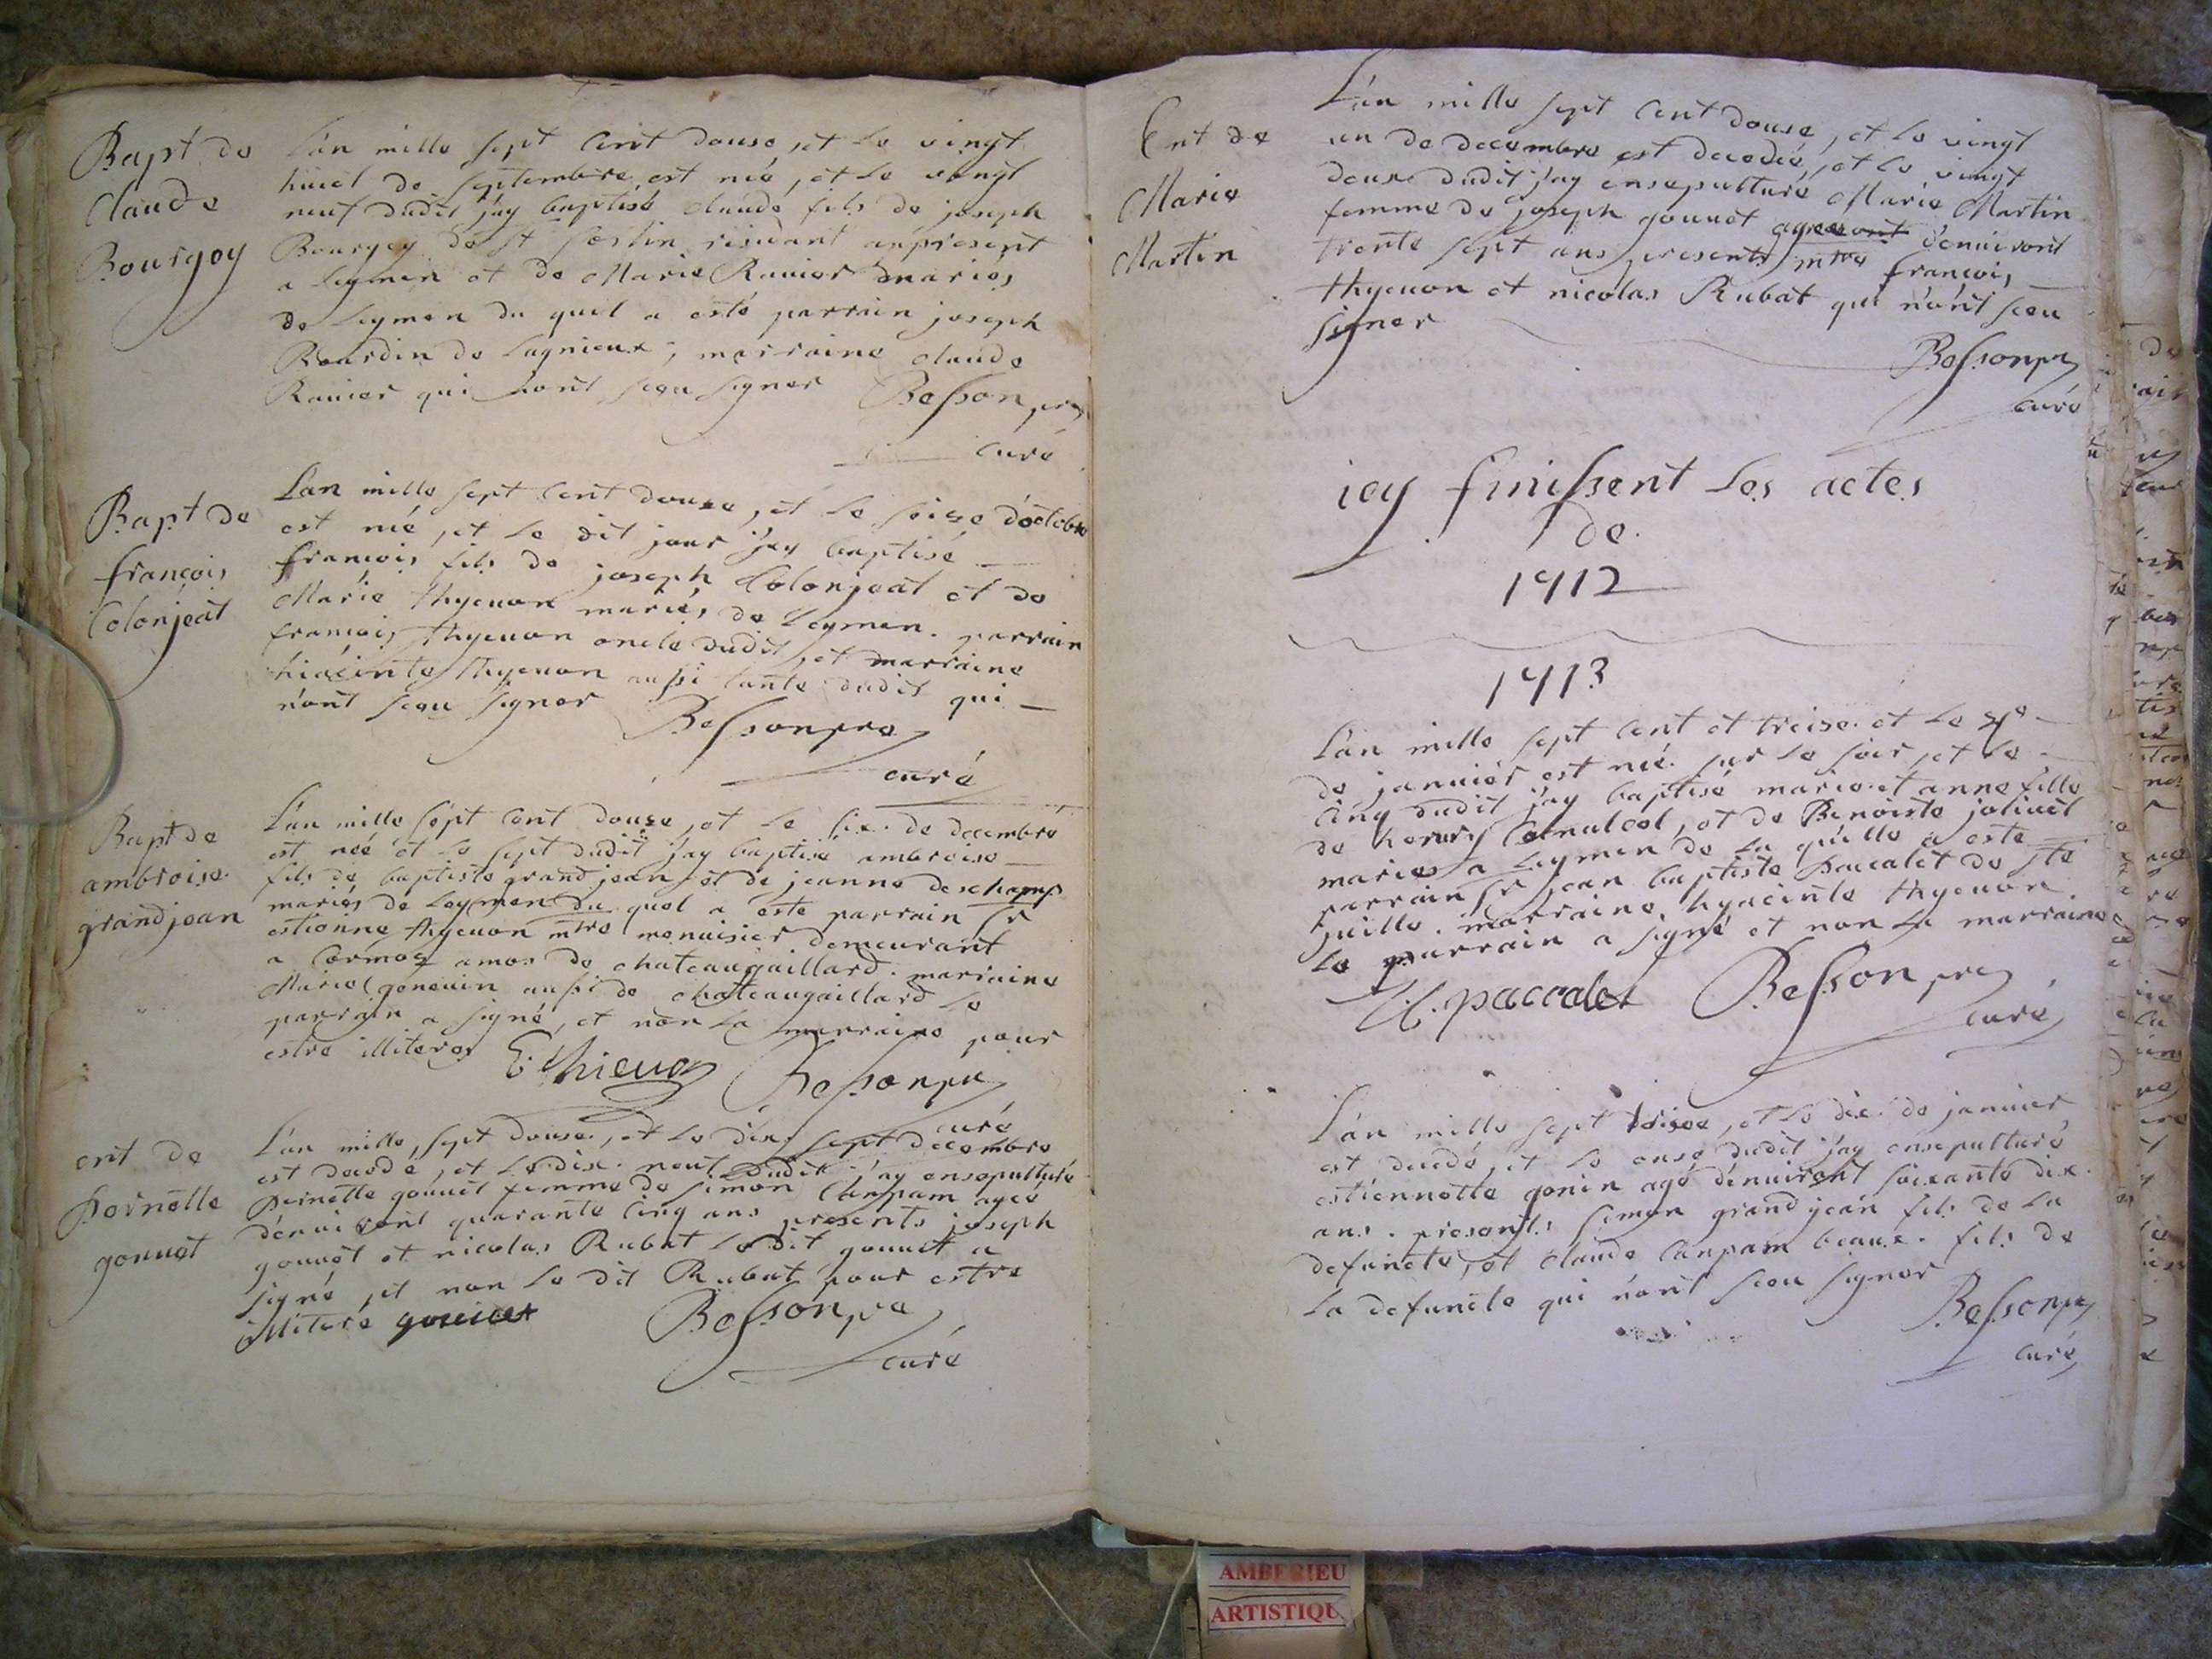 Bapt de
Claude
Bourgey
L'an mille sept Cent douse, et le vingt
huict de septembre est née, et le vingt
neuf dudit j'ay baptisé claude fils de joseph
Bourgey de st sorlin residant apresent
a Leymen et de Marie Ravier mariés
de Leymen du quel a esté parrain joseph
Bourdin de Lagnieux, marraine claude
Ravier qui n'ont sceu signer Besson pre
curé
Bapt de
françois
Colonjeat
L'an mille sept Cent douse, et le seize d'octobre
est née, et le dit jour j'ay baptisé
françois fils de joseph Colonjeat et de
Marie thyevon mariés de Leymen. parrain
françois thyevon oncle dudit, et marraine
hiacinte thyevon aussi tante dudit qui
n'ont sceu signer Besson pre
curé
Bapt de
ambroise
grandjean
L'an mille sept Cent douze, et le six. de decembre
est née et le sept dudit j'ay baptisé ambroise
fils de baptiste grandjean et de jeanne deschamps
mariés de Leymen du quel a esté parrain sr
estienne thyevon mtre menuisier demeurant
a Cormoz amas de chateaugaillard. marraine
Marie genevin aussi de chateaugaillard le
parrain a signé, et non la marraine pour
estre illiteres E. thievon Besson pre
curé
ent de
Pernette
gouuet
L'an mille, sept douse, et le dix sept decembre
est decedé, et le dix. neuf dudit j'ay ensepulturé
Pernette gouuet femme de simon Campam agée
d'enuiront quarante Cinq ans presents joseph
gouuet et nicolas Rubat le dit gouuet a
signé, et non le dit Rubat pour estre
illiteré gouuet Besson pre
curé
Ent de
Marie
Martin
L'an mille sept Cent douse, et le vingt
un de decembre est decedée, et le vingt
deux dudit j'ay ensepulturé Marie Martin
femme de joseph gouuet d'enuiront
trente sept ans presents mtres françois
thyevon et nicolas Rubat qui n'ont sceu
signer
Besson pre
curé
icy finissent les actes
de
1712
1713
L'an mille sept Cent et treise et le
de januier est née sur le soir, et le
Cinq dudit j'ay baptisé marie et anne fille
de henry, et de Benoiste joliuet
mariés a Leymen de la quelle a esté
parrain sr jean baptiste Paccalet de ste
juille. marraine hyacinte thyevon
le parrain a signé et non la marraine
paccalet Besson pre
curé
L'an mille sept treise, et le dix de januier
est decedé, et le onse dudit j'ay ensepulturé
estiennette genin agé d'enuiront soixante dix
ans. presents simon grandjean fils de la
defuncte, et claude Campam beaux. fils de
la defuncte qui n'ont sceu signer
Besson pre
curé
AMBERIEU
ARTISTIQU